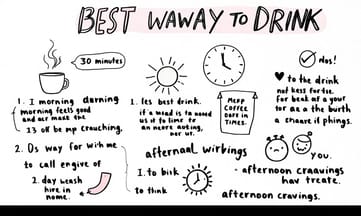 BEST WAWAY TO DRINK
30 minutes
1. I morning darning
morning feels good
and acr make the
13 off be mp crauching,
2. Ds way for with me
to call engive of
2. day weash
hire in
nome.
1. les best drink.
if a word is ta nosed
us it to time to
an nerre auting,
her ut.
MEPP
COFFEE
DAFF IN
TIMES.
afternaal wirbings
1. to bik
to think
dos!
to the drink
not kess fortse
for beak at a your
for as a the burth
a chaset it phings.
you.
afternoon craawings
hav treate.
afternoon cravings.